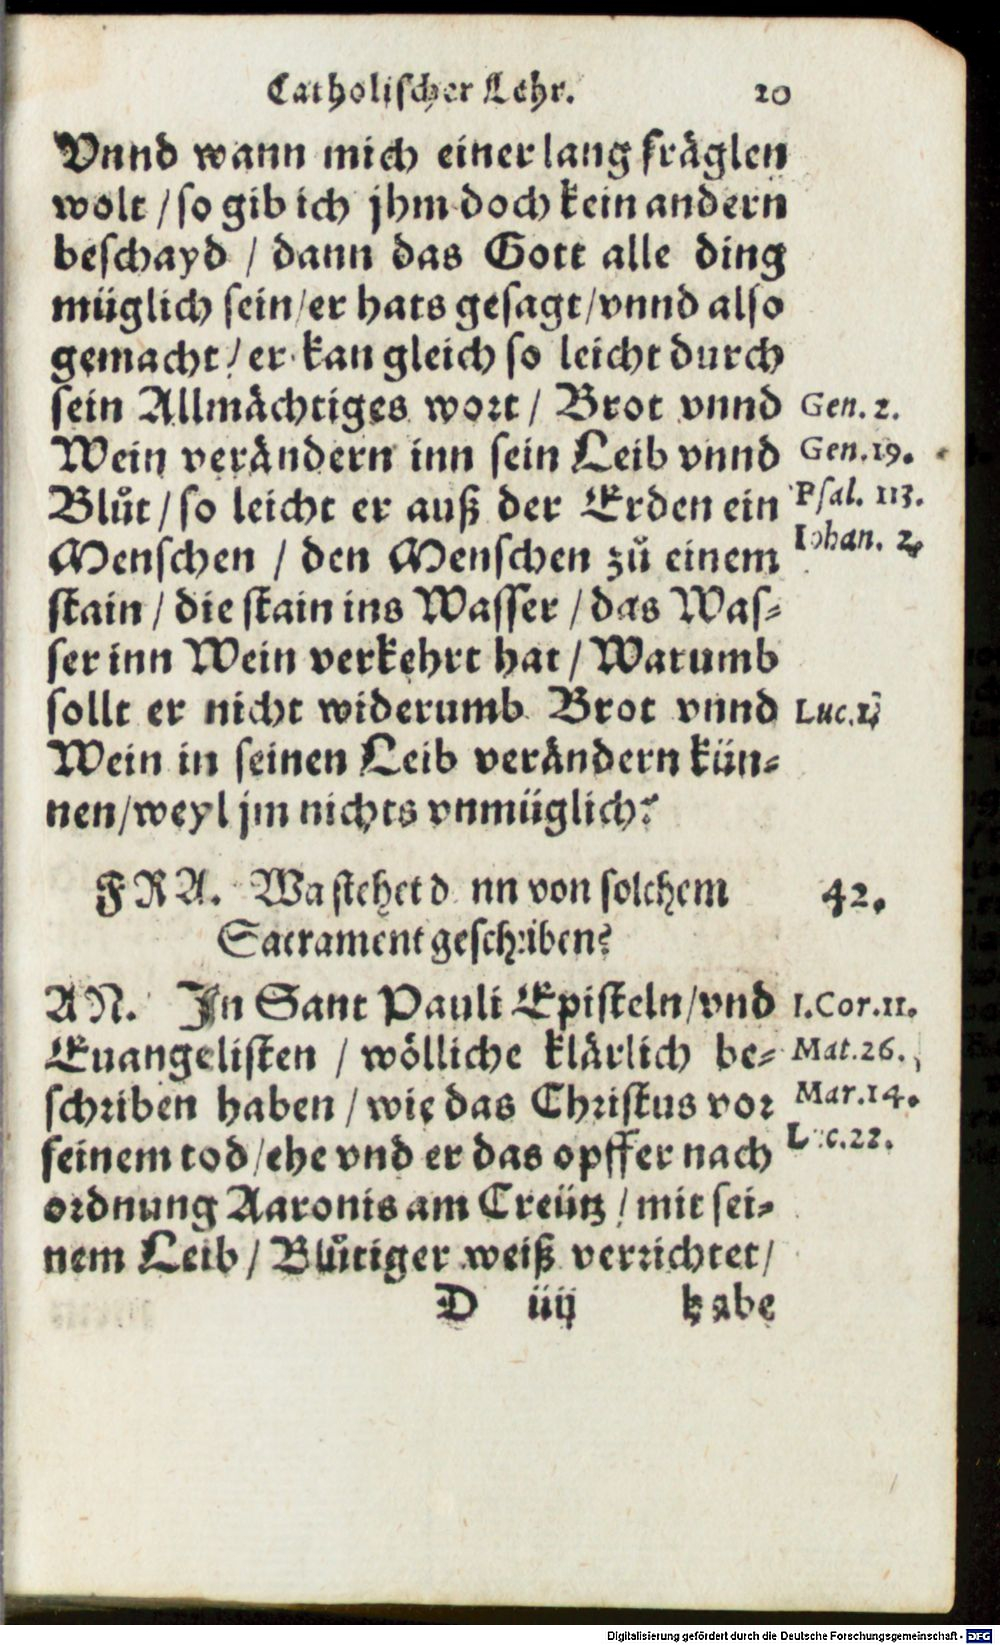 Catholischer Lehr. 20
Vnnd wann mich einer lang fräglen
wolt / so gib ich jhm doch kein andern
beschayd / dann das Gott alle ding
müglich sein / er hats gesagt / vnnd also
gemacht / er kan gleich so leicht durch
sein Allmächtiges wort / Brot vnnd Gen. 2.
Wein verändern inn sein Leib vnnd Gen. 19.
Blůt / so leicht er auß der Erden ein Psal. 113.
Menschen / den Menschen zů einem Iohan. 2.
stain / die stain ins Wasser / das Was-
ser inn Wein verkehrt hat / Warumb
sollt er nicht widerumb Brot vnnd Luc. 1.
Wein in seinen Leib verändern kün-
nen / weyl jm nichts vnmüglich?
FRA. Wa stehet dann von solchem 42.
Sacrament geschriben?
AN. In Sant Pauli Episteln / vnd 1. Cor. 11.
Euangelisten / wölliche klärlich be- Mat. 26.
schriben haben / wie das Christus vor Mar. 14.
seinem tod / ehe vnd er das opffer nach Luc. 22.
ordnung Aaronis am Creütz / mit sei-
nem Leib / Blůtiger weiß verrichtet /
D iiij habe
Digitalisierung gefördert durch die Deutsche Forschungsgemeinschaft - DFG